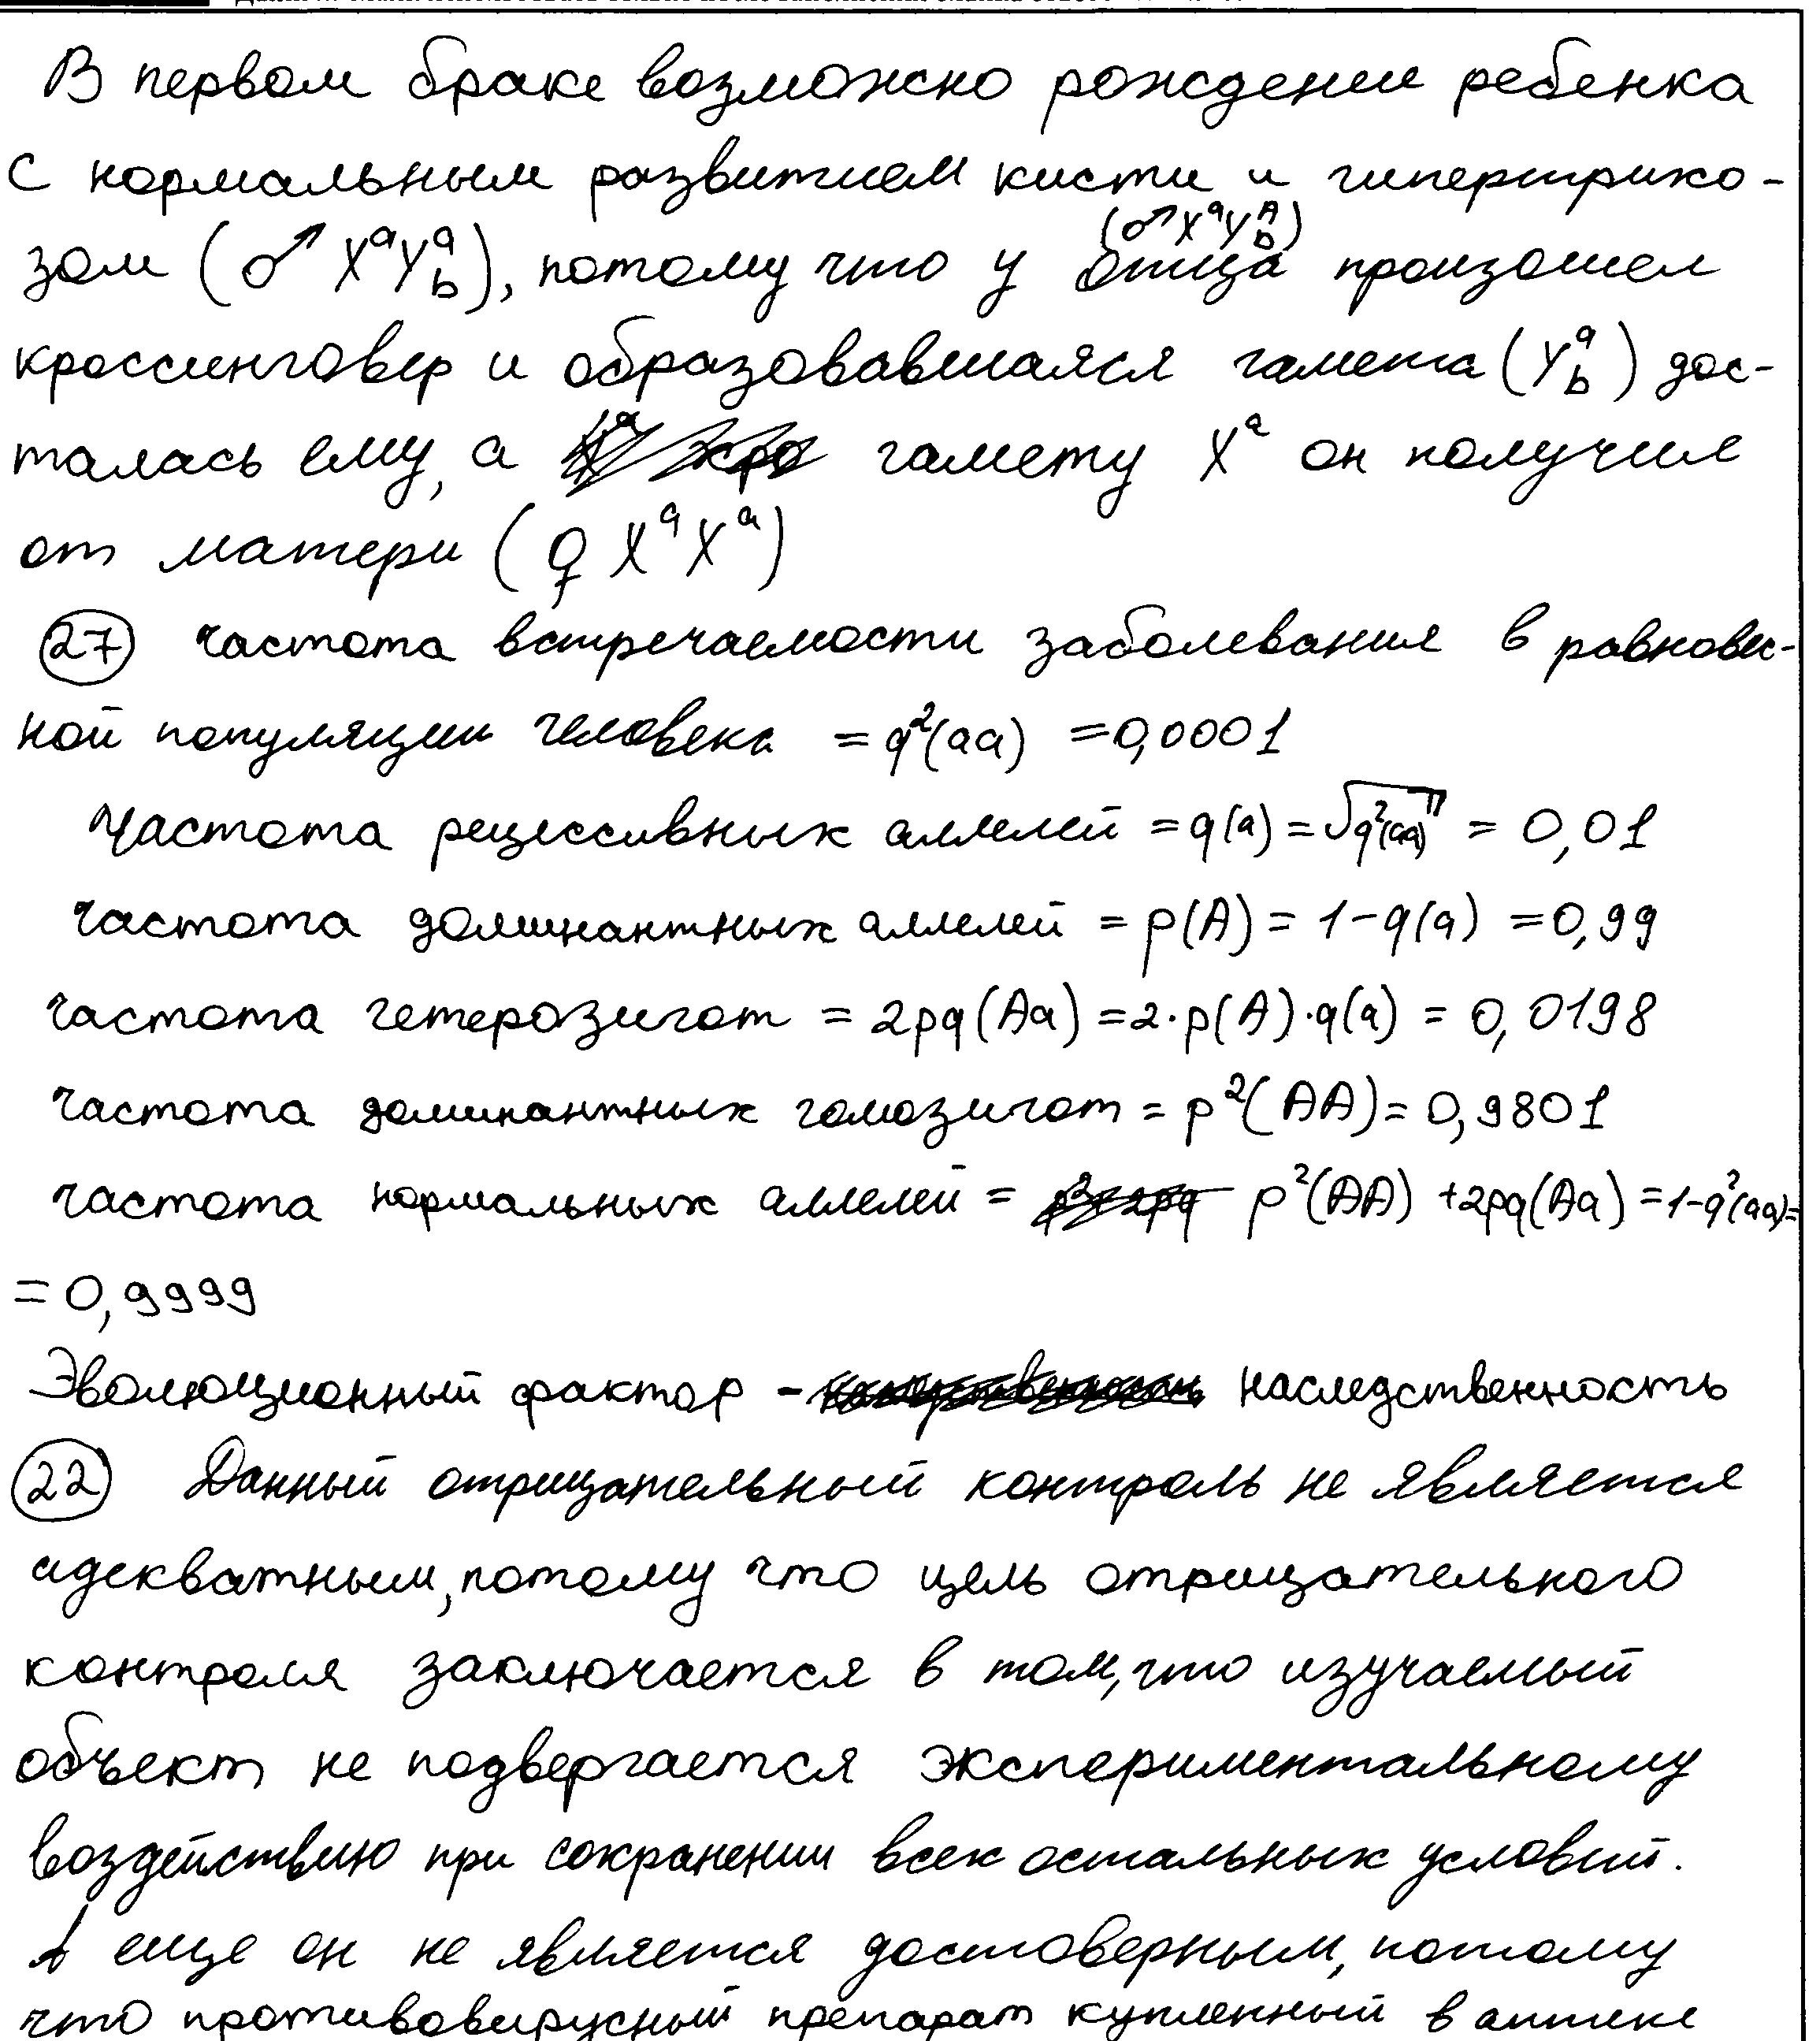 В первом браке возможно рождении ребенка
с нормальным развитием кисти и гипертрихо-
(♂XᵃYᴬb)
зом (♂ XᵃYᵃb), потому что у отца произошел
кроссинговер и образовавшаяся гамета (Yᵃb) дос-
талась ему, а гамету Xᵃ он получил
от матери (♀ XᵃXᵃ)
27 Частота встречаемости заболевания в равновес-
ной популяции человека = q²(aa) = 0,0001
Частота рецессивных аллелей = q(a) = √q²(aa) = 0,01
Частота доминантных аллелей = p(A) = 1-q(a) = 0,99
Частота гетерозигот = 2pq(Aa) = 2·p(A)·q(a) = 0,0198
Частота доминантных гомозигот = p²(AA) = 0,9801
Частота нормальных аллелей = p²(AA) + 2pq(Aa) = 1-q²(aa)=
= 0,9999
Эволюционный фактор - наследственность
22 Данный отрицательный контроль не является
адекватным, потому что цель отрицательного
контроля заключается в том, что изучаемый
объект не подвергается экспериментальному
воздействию при сохранении всех остальных условий.
А еще он не является достоверным, потому
что противовирусный препарат купленный в аптеке